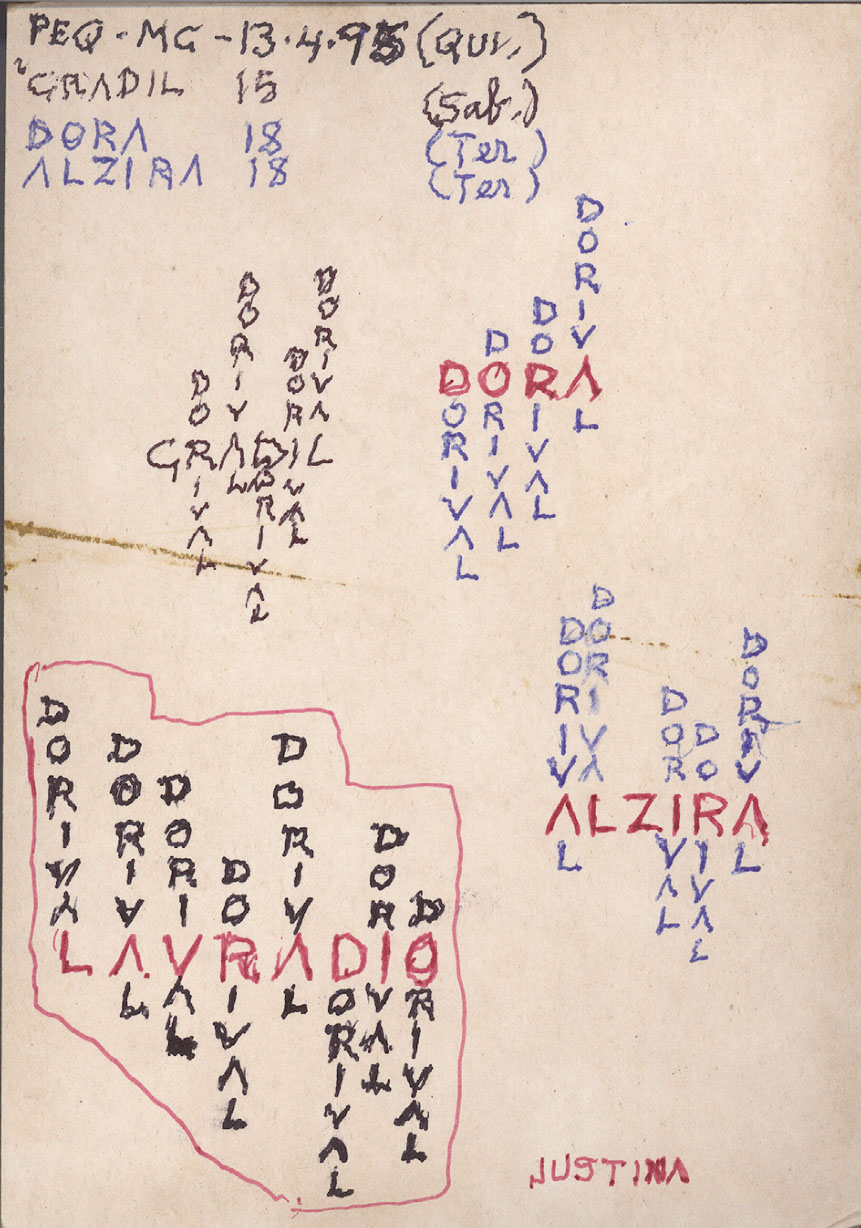 PEQ - MG - 13.4.95 (QUI.)
GRADIL 15 (Sab.)
DORA 18 (Ter)
ALZIRA 18 (Ter)
DORIVAL
DORIVAL
DORIVAL
DORIVAL
DORIVAL
GRADIL
DORIVAL
DORIVAL
DORIVAL
DORIVAL
DORA
DORIVAL
DORIVAL
DORIVAL
DORIVAL
DORIVAL
ALZIRA
DORIVAL
DORIVAL
DORIVAL
DORIVAL
DORIVAL
DORIVAL
DORIVAL
DORIVAL
LAVRADIO
JUSTINA